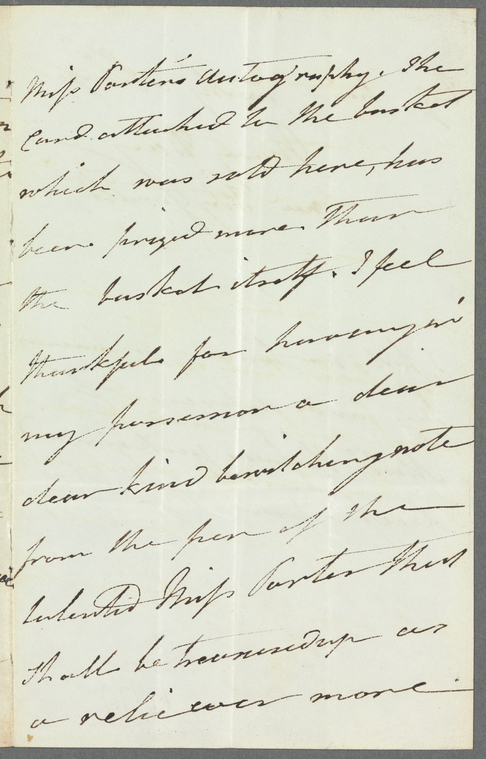 Miss Porter's Autography. The
Card attached to the basket
which was sold here, has
been prized more than
the basket itself. I feel
thankful for having in
my possession a dear
dear kind bewitching note
from the pen of the
talented Miss Porter that
shall be treasured up as
a relic ever more